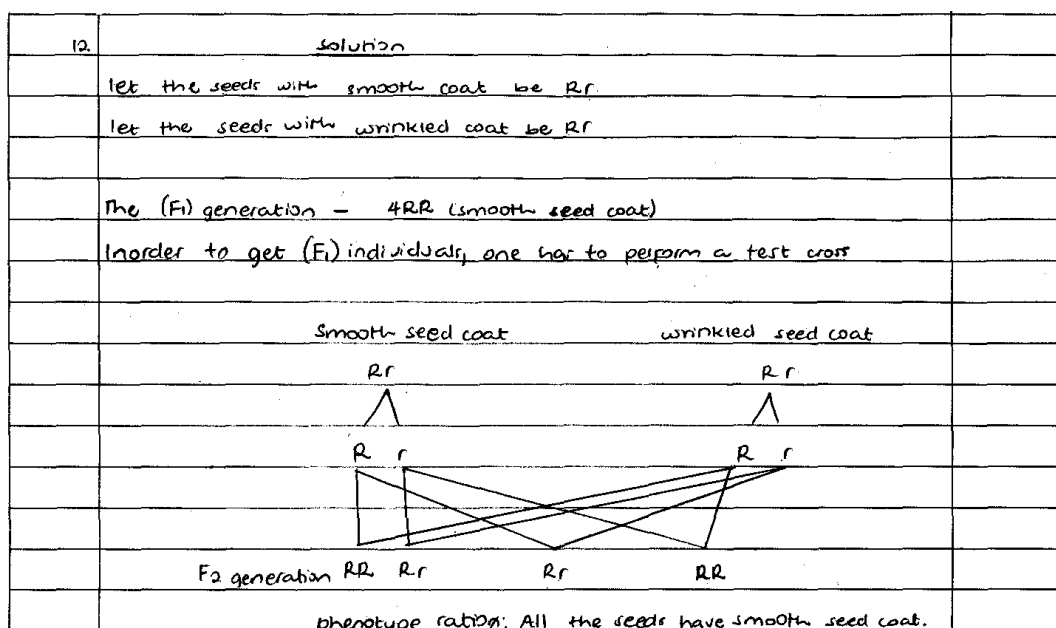 12. solution
let the seeds with smooth coat be Rr.
let the seeds with wrinkled coat be Rr
The (F1) generation - 4RR (smooth seed coat)
Inorder to get (F1) individuals, one has to perform a test cross
smooth seed coat wrinkled seed coat
Rr Rr
R r R r
F2 generation RR Rr Rr RR
phenotype ration: All the seeds have smooth seed coat.